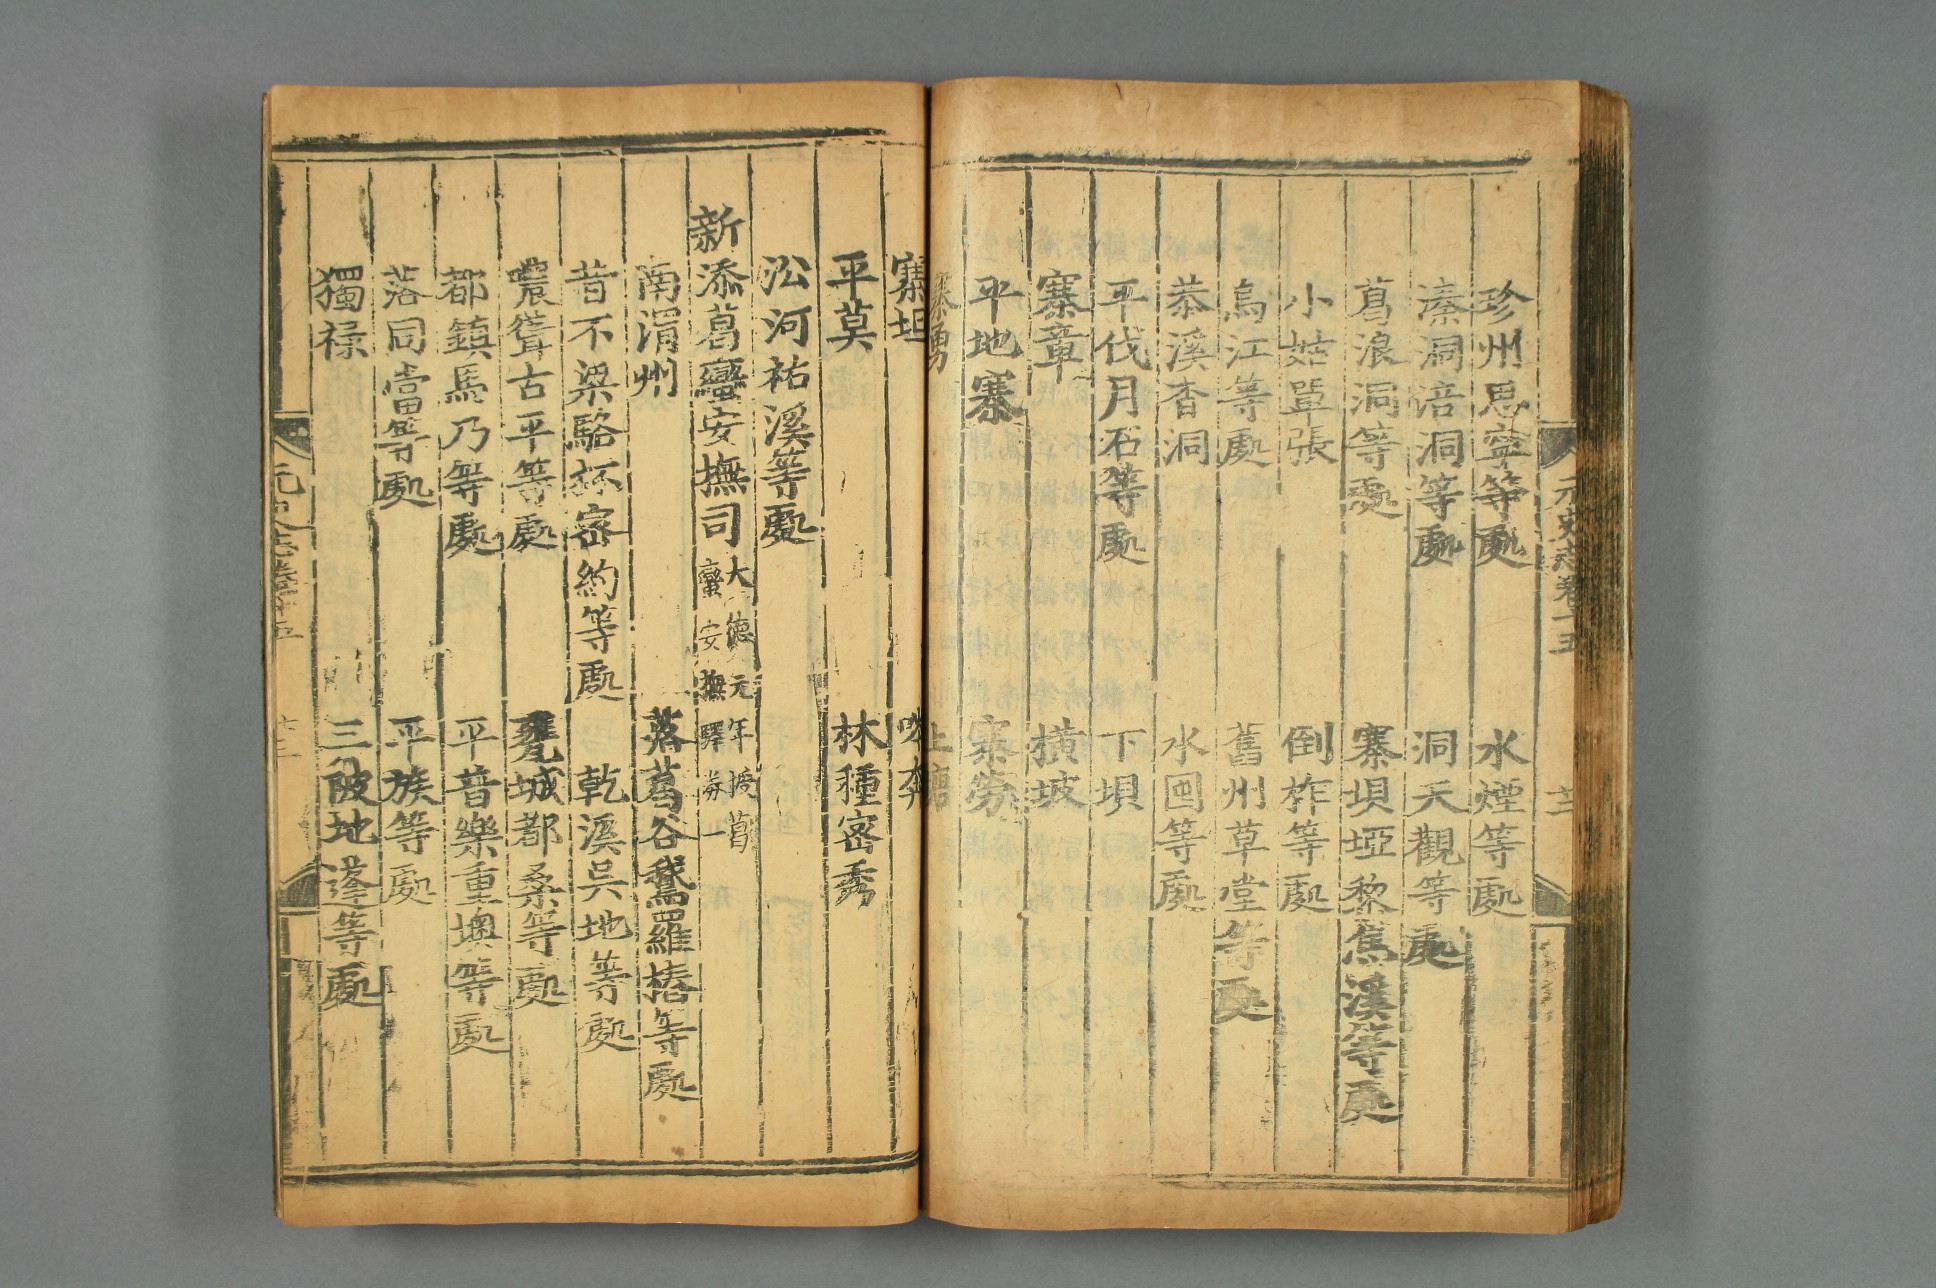 元史志卷十五
珍州思寧等處 水煙等處
溱洞涪洞等處 洞天觀等處
葛浪洞等處 寨壩埡黎焦溪等處
小姑單張 倒柞等處
烏江等處 舊州草堂等處
恭溪杳洞 水囤等處
平伐月石等處 下壩
寨章 橫坡
平地寨 寨勞
寨勇 上塘
寨坦
平莫 林種密秀
沿河祐溪等處
新添葛蠻安撫司 大德元年授葛蠻安撫驛券一
南渭州 落葛谷鵞羅椿等處
昔不梁駱杯密約等處 乾溪吳地等處
噥聳古平等處 甕城都桑等處
都鎮馬乃等處 平普樂重墺等處
落同當等處 平族等處
獨祿 三陂地蓬等處
元史志卷十五